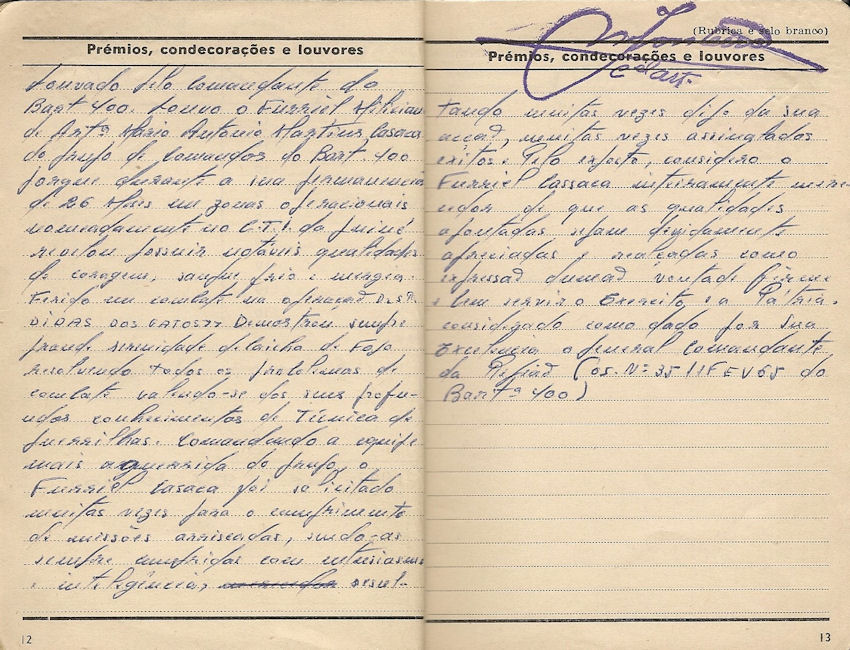 Prémios, condecorações e louvores
Louvado pelo Comandante do
Bart 400. Louvo o Furriel Milician
de Artª Mário António Martins Casaca
do grupo de Comandos do Bart. 400
porque durante a sua permanencia
de 26 Mêses em zonas operacionais
nomeadamente no C.T.I. da Guiné
revelou possuir notáveis qualidades
de coragem, sangue frio e energia.
Ferido em combate na operação DESP
DIDAS DOS GATOS77 Demostrou sempre
grande serenidade debaicho de Fogo
resolvendo todos os problemas de
combate valendo-se dos seus profu-
ndos conhecimentos de Técnica de
guerrilhas. Comandando a equipe
mais aguerrida do grupo, o
Furriel Casaca foi solicitado
muitas vezes para o cumprimento
de missões arriscadas, sendo-as
sempre cumpridas com entusiasmo
e inteligência, resul-
12
(Rubrica e selo branco)
Prémios, condecorações e louvores
tando muitas vezes dije da sua
acção, muitas vezes assinalados
exitos. Pelo exposto, considero o
Furriel Cassaca inteiramente mere-
cedor de que as qualidades
apontadas sejam devidamente
apreciadas e realçadas como
expressão dumad vontade firme
e bem servir o Exercito e a Pátria.
considerado como dado por sua
Excelencia o general Comandante
da Região (OS. Nº 35 11FEV65 do
Bartª 400)
13